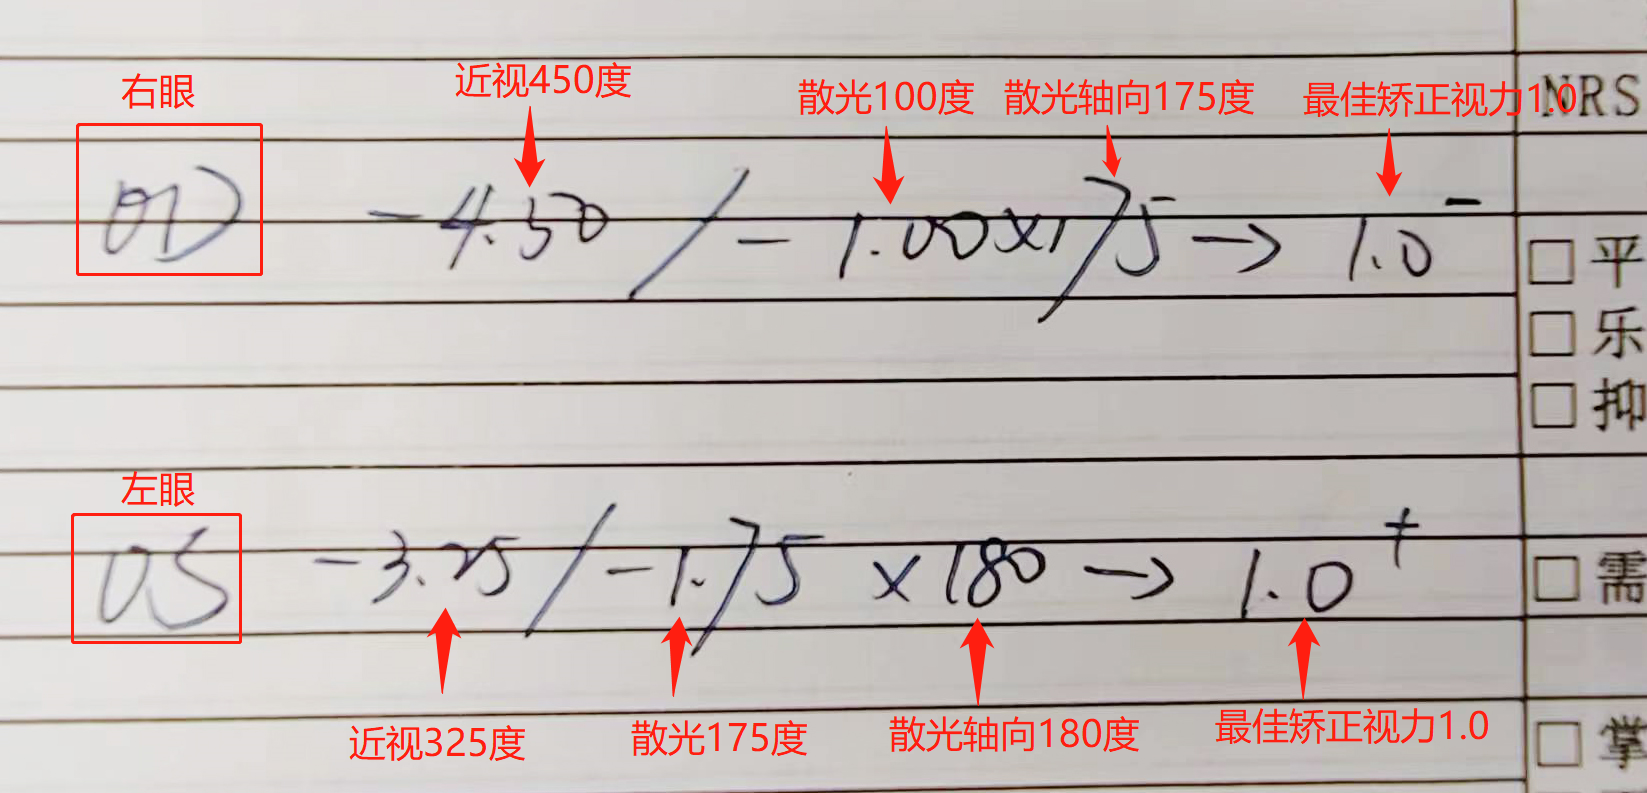 右眼 近视450度 散光100度 散光轴向175度 最佳矫正视力1.0 NRS
OD -4.50 / -1.00×175 → 1.0⁻
□ 平
□ 乐
□ 抑
左眼
OS -3.25 / -1.75 ×180 → 1.0⁺
□ 需
近视325度 散光175度 散光轴向180度 最佳矫正视力1.0
□ 掌